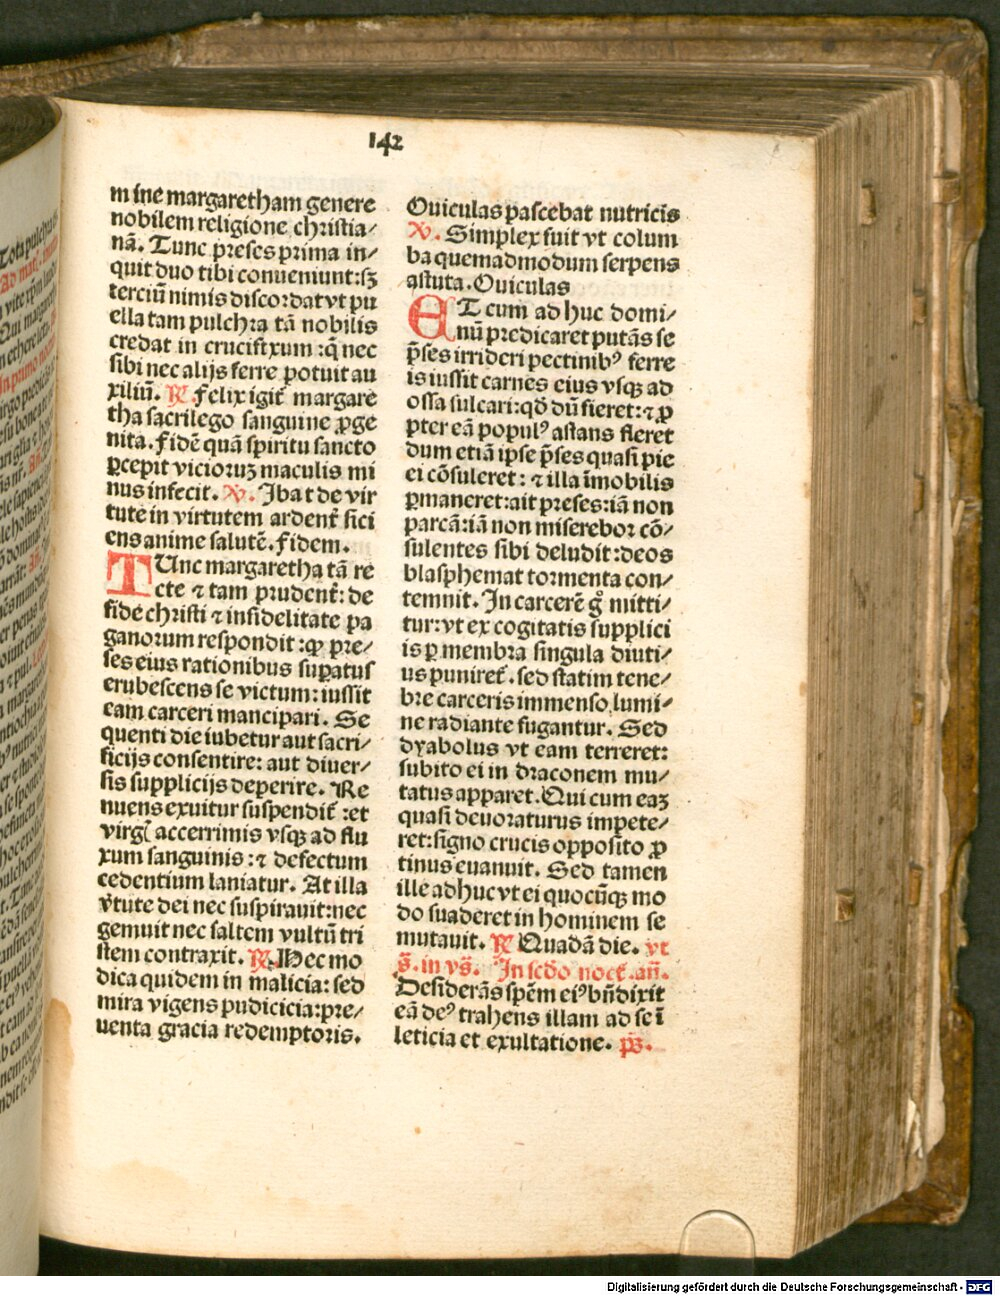 142
mine margaretham genere
nobilem religione christia⸗
nā. Tunc preses prima in⸗
quit duo tibi conueniunt:sꝫ
terciū nimis discordat vt pu
ella tam pulchra tā nobilis
credat in crucifixum :q̄ nec
sibi nec alijs ferre potuit au
xiliū. ℟ Felix igit᷑ margare
tha sacrilego sanguine ꝓge
nita. fidē quā spiritu sancto
ꝑcepit vicioruꝫ maculis mi
nus infecit. ℣. Ibat de vir
tute in virtutem ardent᷑ sici
ens anime salutē. Fidem.
TUnc margaretha tā re
cte ⁊ tam prudent᷑: de
fide christi ⁊ infidelitate pa
ganorum respondit :ꝙ pre⸗
ses eius rationibus suꝑatus
erubescens se victum: iussit
eam carceri mancipari. Se
quenti die iubetur aut sacri⸗
ficijs consentire: aut diuer⸗
sis supplicijs deperire. Re
nuens exuitur suspendit᷑ :et
virgꝭ accerrimis vsqꝫ ad flu
xum sanguinis :⁊ defectum
cedentium laniatur. At illa
v̄tute dei nec suspirauit:nec
gemuit nec saltem vultū tri
stem contraxit. ℟. Hec mo
dica quidem in malicia: sed
mira vigens pudicicia:pre⸗
uenta gracia redemptoris.
Ouiculas pascebat nutricis
℣. Simplex fuit vt colum
ba quemadmodum serpens
astuta. Ouiculas
ET cum ad huc domi⸗
nū predicaret putās se
p̄ses irrideri pectinibꝰ ferre
is iussit carnes eius vsqꝫ ad
ossa sulcari:qđ dū fieret:⁊ ꝓ
pter eā populꝰ astans fleret
dum etiā ipse p̄ses quasi pie
ei cōsuleret: ⁊ illa īmobilis
ꝑmaneret:ait preses:iā non
parcā:iā non miserebor cō⸗
sulentes sibi deludit:deos
blasphemat tormenta con⸗
temnit. In carcerē gͦ mitti⸗
tur:vt ex cogitatis supplici
is ꝑ membra singula diuti⸗
us puniret᷑. sed statim tene⸗
bre carceris immenso lumi⸗
ne radiante fugantur. Sed
dyabolus vt eam terreret:
subito ei in draconem mu⸗
tatus apparet. Qui cum eaꝫ
quasi deuoraturus impete⸗
ret:signo crucis opposito ꝓ
tinus euanuit. Sed tamen
ille adhuc vt ei quocūqꝫ mo
do suaderet in hominem se
mutauit. ℟ Quadā die. vt
s̄. in vs̄. In scđo noct᷑. añ.
Desiderās spēm eiꝰ bñdixit
eā deꝰ trahens illam ad se ī
leticia et exultatione. p̄s.
Digitalisierung gefördert durch die Deutsche Forschungsgemeinschaft - DFG